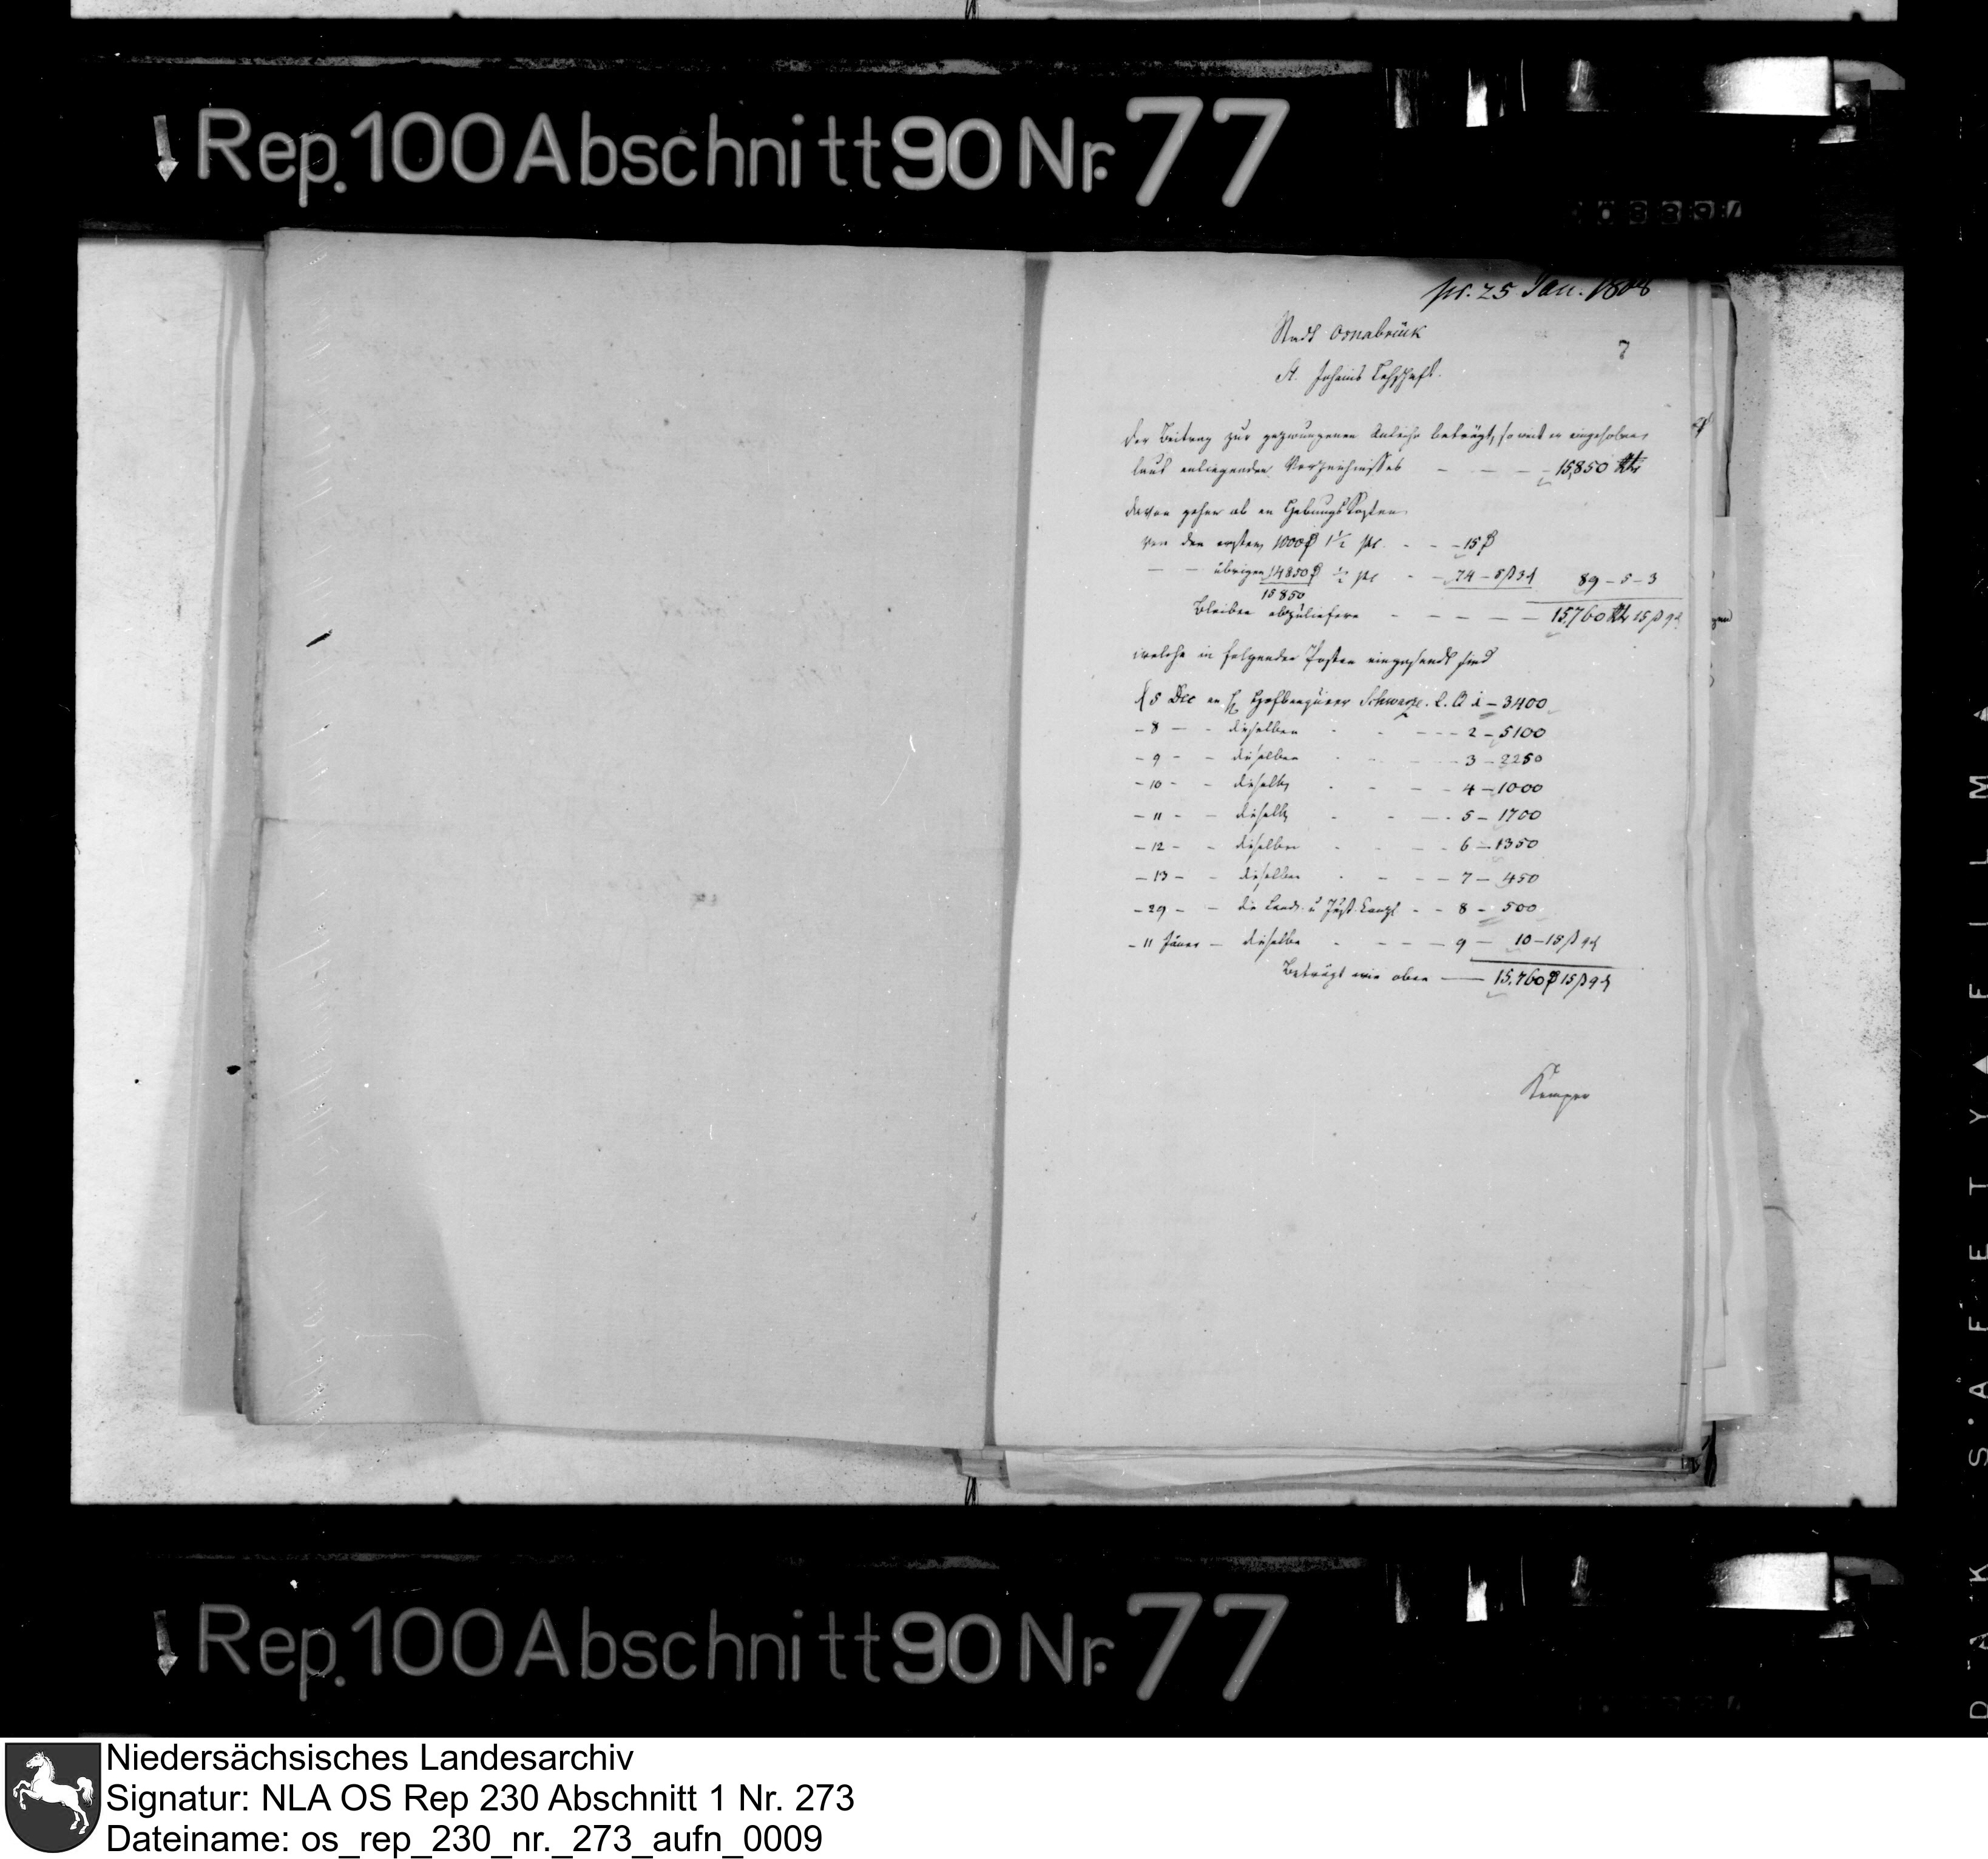 Rep. 100 Abschnitt 90 Nr. 77
pr. 25 Jan. 1808
Stadt Osnabrück
7
St. Johanis Leyschaft.
Der Beitrag zur gezwungenen Anleihe beträgt, so weit er eingehoben,
laut anliegenden Verzeichnisses — — — 15,850 Rtlr
davon gehen ab an Hebungs Kosten
von den ersten 1000 Rt 1 1/2 pC. - - - 15 Rt
— — übrigen 14850 Rt 1/2 pC - - 74 - 5 ß 3 d 89 - 5 - 3
15850
Bleiben abzuliefern - - - - - 15,760 Rtlr 15 ß 9 d
welche in folgenden Posten eingesandt sind
5 Dec an H. Hofbanquier Schwarze. L. Q. 1 - 3400
- 8 - - dieselben - - - - 2 - 5100
- 9 - - dieselben - - - - 3 - 2250
- 10 - - dieselb - - - - 4 - 1000
- 11 - - dieselb - - - - 5 - 1700
- 12 - - dieselben - - - - 6 - 1350
- 13 - - dieselben - - - - 7 - 450
- 29 - - die Land- u Just. Canzl - - 8 - 500
- 11 Jäner - dieselbe - - - - 9 - 10 - 15 ß 9 d
Beträgt wie oben — 15,760 Rt 15 ß 9 d
Kemper
Rep. 100 Abschnitt 90 Nr. 77
SAFETY FILM
Niedersächsisches Landesarchiv
Signatur: NLA OS Rep 230 Abschnitt 1 Nr. 273
Dateiname: os_rep_230_nr._273_aufn_0009